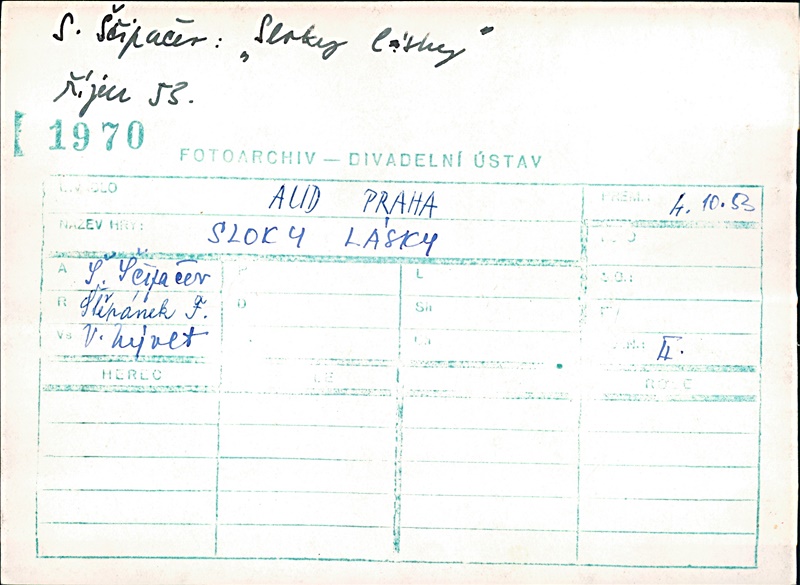 S. Ščipačev: „Sloky lásky"
říjen 53.
1970
FOTOARCHIV — DIVADELNÍ ÚSTAV
DIVADLO AUD PRAHA PREM. 4. 10. 53
NÁZEV HRY: SLOKY LÁSKY
A Š. Ščipačev P L
R Štěpánek F. D Sn
Vs V. Nývlt II.
HEREC ROLE